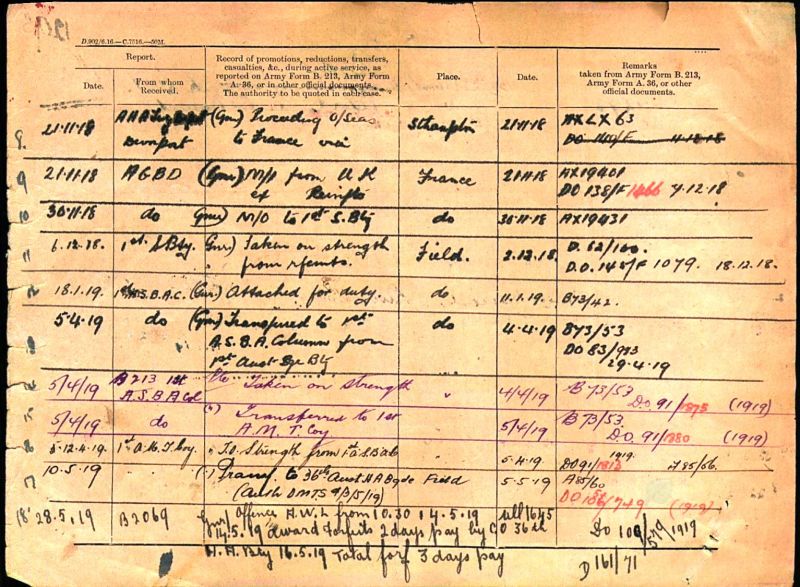 D.902/6.16.—C.7516.—50M.
Report.
Record of promotions, reductions, transfers,
casualties, &c., during active service, as
reported on Army Form B. 213, Army Form
A. 36, or in other official documents.
The authority to be quoted in each case.
Place.
Date.
Remarks
taken from Army Form B. 213,
Army Form A. 36, or other
official documents.
Date.
From whom
Received.
8 21.11.18 (Gnr) Proceeding O/Seas Sthampton 21.11.18 AXLX 63
Devonport to France via DO 4.12.18
9 21.11.18 AGBD (Gnr) M/I from U K France 21.11.18 AX19401
ex Reinfts DO 138/F 1466 7.12.18
10 30.11.18 do (Gnr) M/O to 1st S. Bty do 30.11.18 AX19431
11 6.12.18. 1st S Bty. Gnr) Taken on strength Field. 2.12.18. D. 82/100.
from rfemts. D.O. 148/F 1079. 18.12.18.
18.1.19. A.S.B.A.C. (Gnr) Attached for duty. do 11.1.19. B73/42.
5.4.19 do (Gnr) Transferred to 1st do 4.4.19 B73/53
A.S.B.A Column from DO 83/983
1st Aust Sge Bty 29.4.19
5/4/19 B 213 1st Taken on Strength " 4/4/19 B 73/53
A.S.B.A Col D.O. 91/1875 (1919)
15 5/4/19 do (") Transferred to 1st 5/4/19 B 73/53.
A.M.T. Coy D.O. 91/1880 (1919)
5-12.4.19. 1st A.M.T. Coy. " T.O. Strength from 1st A.S.B.A.C. " 5.4.19 DO 91/ 1919. 785/56.
10.5.19 (") Trans. to 36th Aust H A Bgde Field 5.5.19 A85/60
(Auth DMTS 9/3/5/19) DO 749 (1919)
18 28.5.19 B2069 Gnr) Offence A.W.L from 10.30 14.5.19 till 1645
14.5.19 Award forfeits 2 days pay by C O 36th DO 109/ 1919
H.A. Bty 16.5.19 Total forf 3 days pay D 161/71